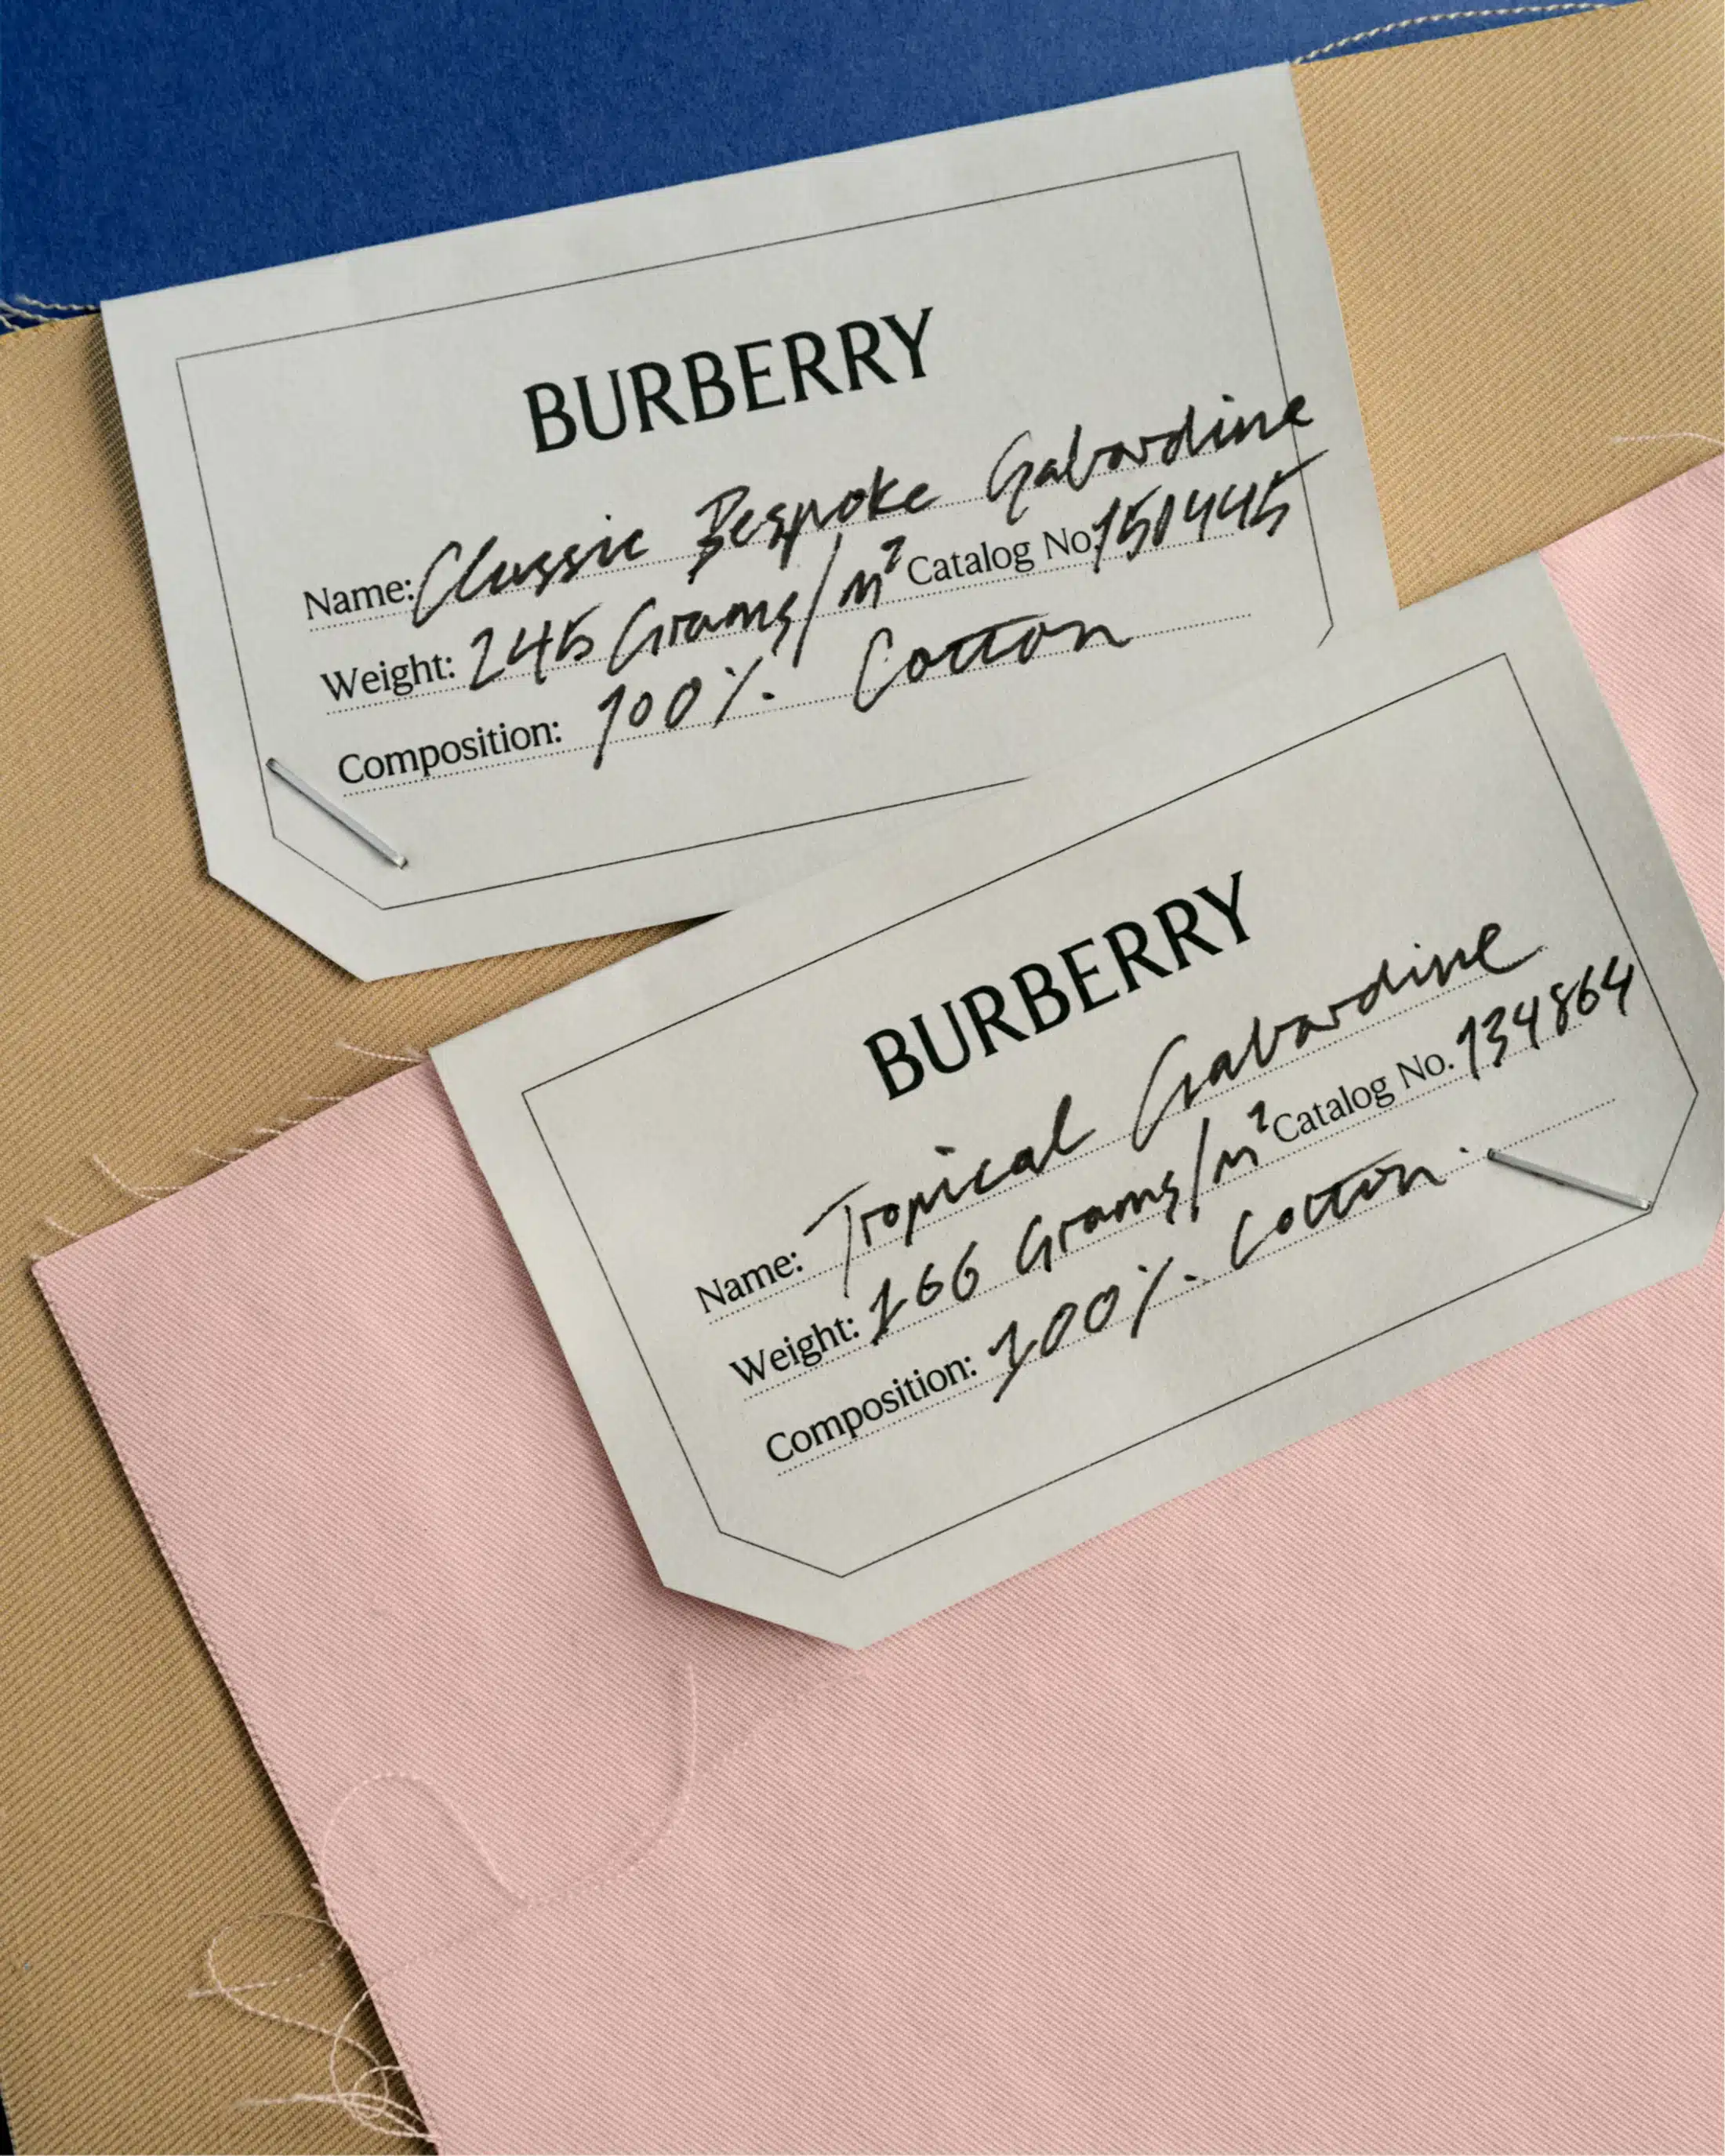 BURBERRY
Name: Classic Bespoke Gabardine
Weight: 245 Grams/m² Catalog No. 150445
Composition: 100% Cotton
BURBERRY
Name: Tropical Gabardine
Weight: 166 Grams/m² Catalog No. 134864
Composition: 100% Cotton.